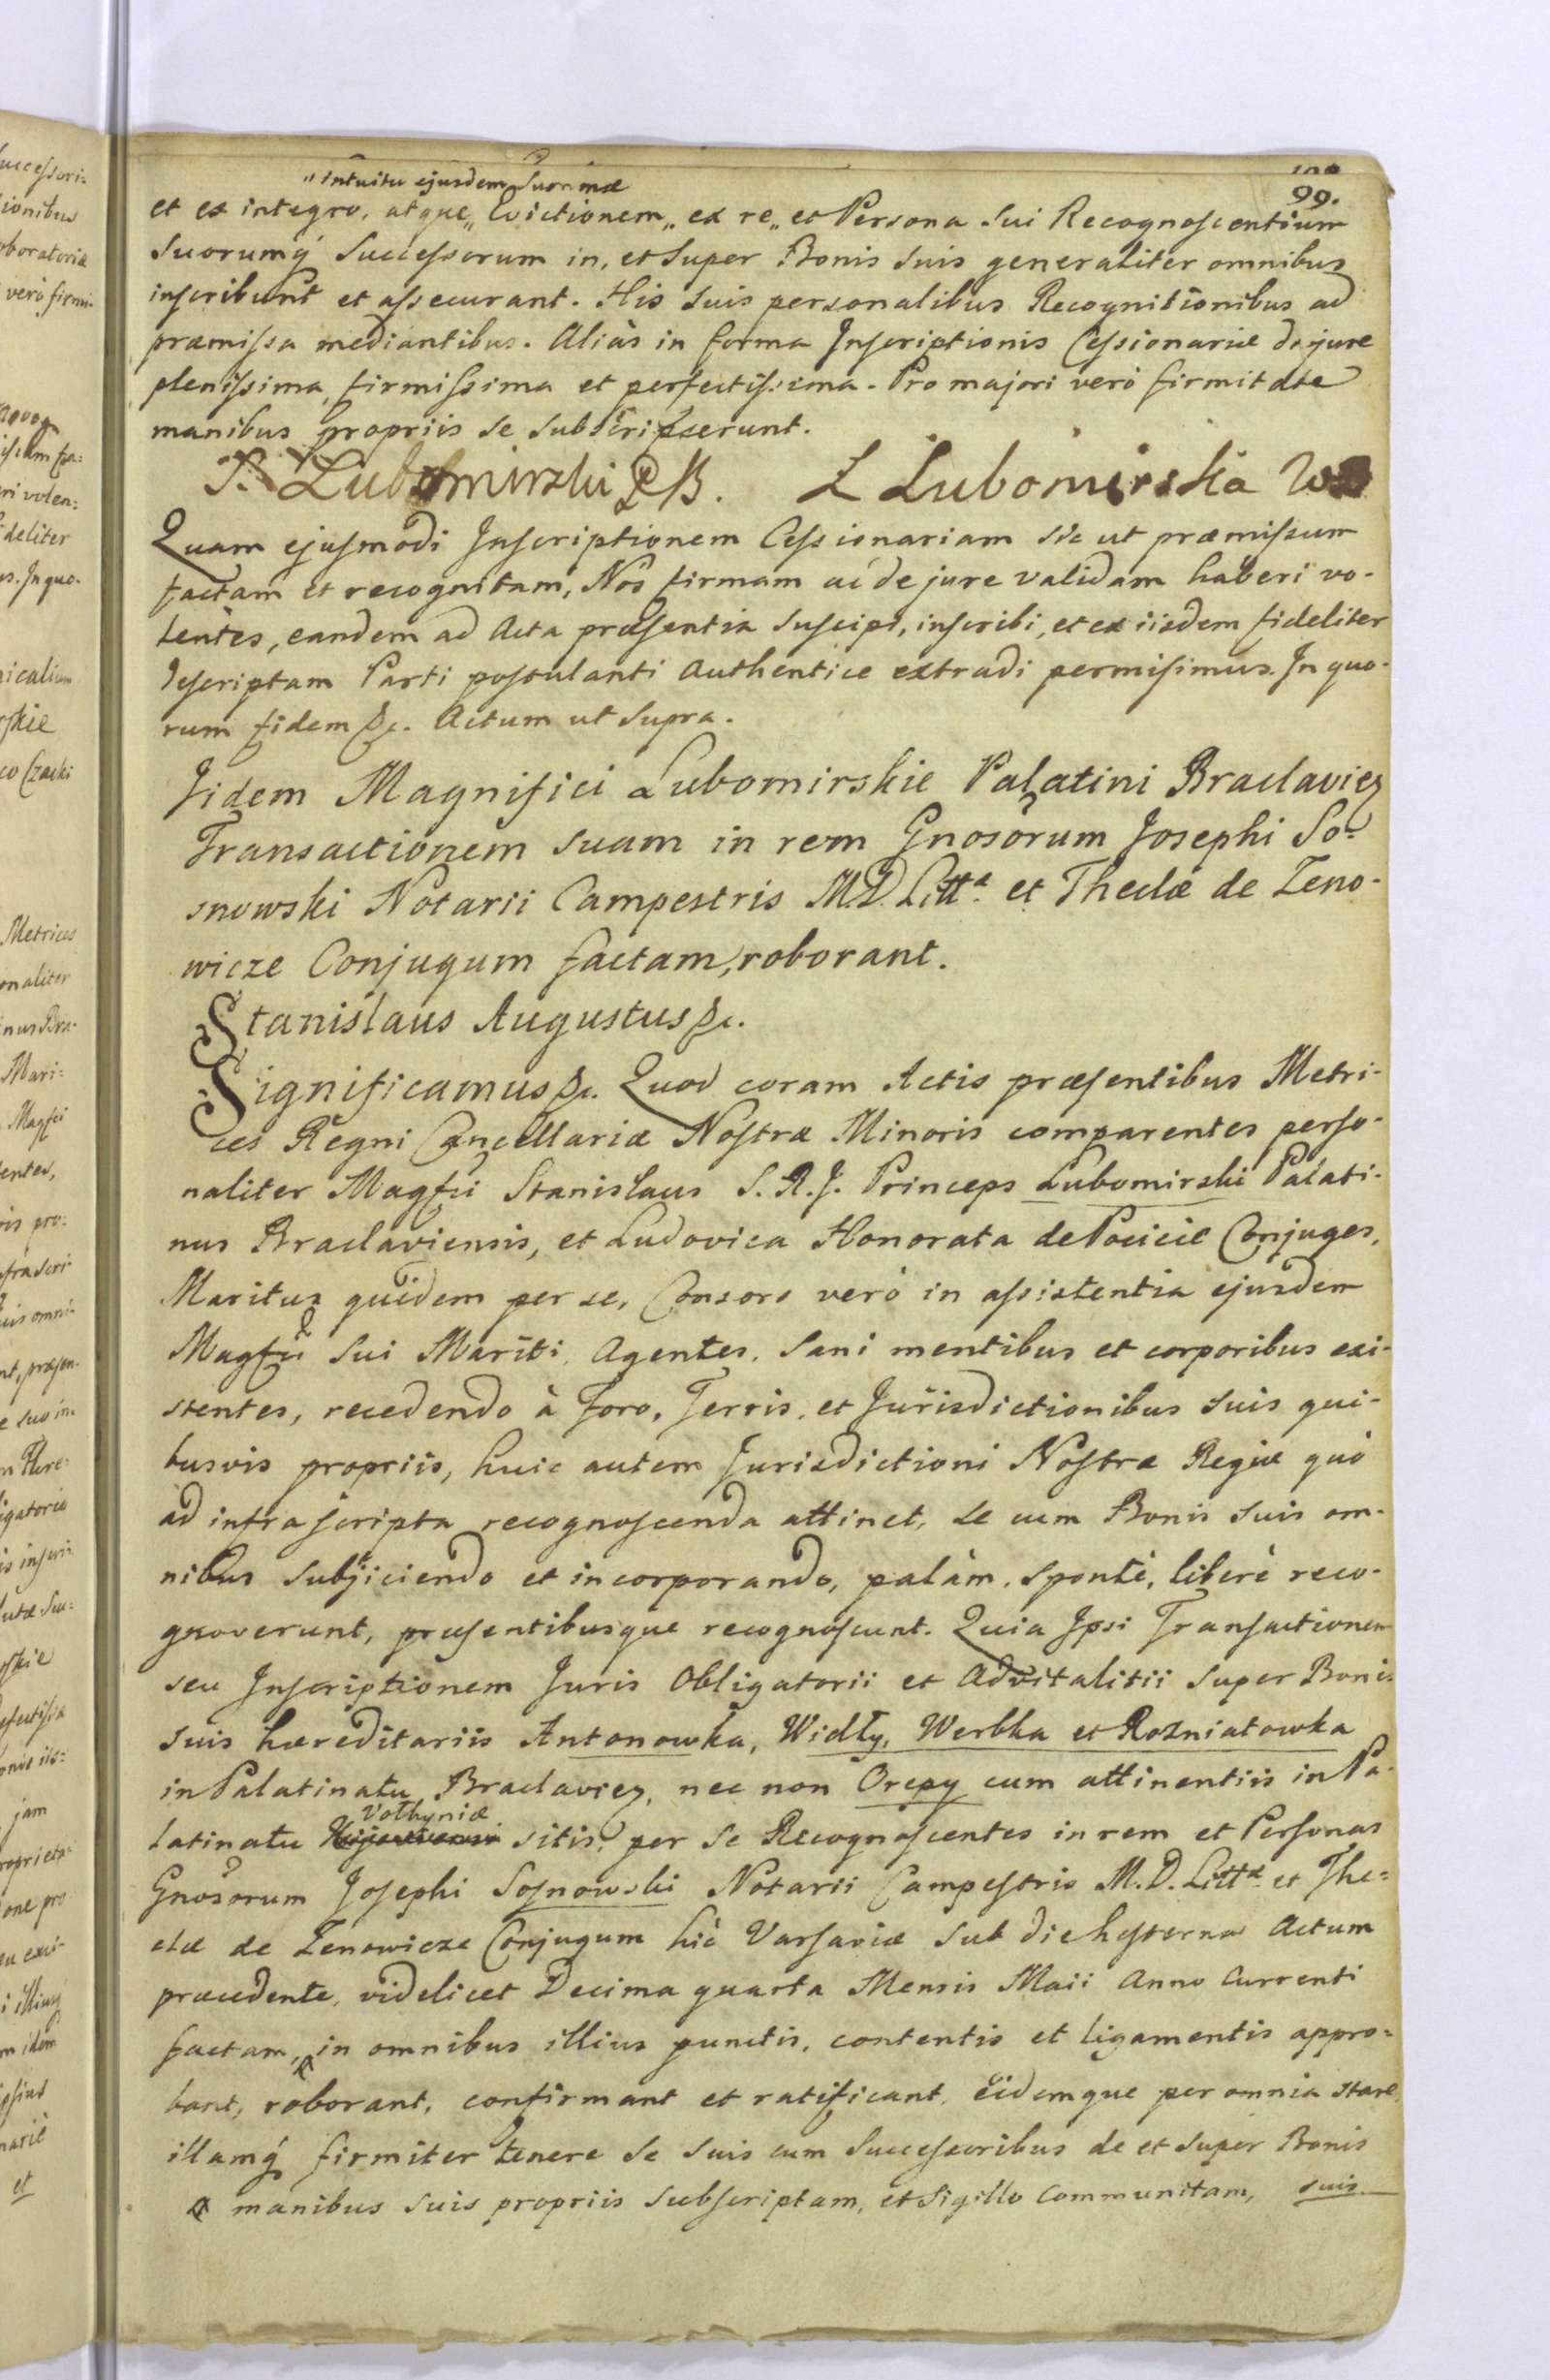 99.
"intuitu ejusdem Summæ
et ex integro, atque„ Evictionem„ ex re„ et Persona sui Recognoscentium
suorumq́ Successorum in, et super Bonis suis generaliter omnibus
inscribunt et assecurant. His suis personalibus Recognitionibus ad
præmissa mediantibus. Aliàs in forma Inscriptionis Cessionariæ de jure
plenissima, firmissima et perfectissima. Pro majori verò firmitate
manibus propriis se subscripserunt.
Lubomirski PB. L Lubomirska
Quam ejusmodi Inscriptionem Cessionariam sic ut præmissum
factam et recognitam, Nos firmam ac de jure validam haberi vo-
lentes, eandem ad Acta præsentia suscipi, inscribi, et ex iisdem fideliter
descriptam Parti postulanti authentice extradi permisimus. In quo-
rum fidem &c. Actum ut supra.
Iidem Magnifici Lubomirskie Palatini Braclavien
Transactionem suam in rem Gnosorum Josephi So-
snowski Notarii Campestris M.D. Littæ et Theclæ de Zeno-
wicze Conjugum factam, roborant.
Stanislaus Augustus &c.
Significamus &c. Quod coram Actis præsentibus Metri-
ces Regni Cancellariæ Nostræ Minoris comparentes perso-
naliter Magfci Stanislaus S. R. J. Princeps Lubomirski Palati-
nus Braclaviensis, et Ludovica Honorata de Pocieie Conjuges,
Maritus quidem per se, Consors verò in assistentia ejusdem
Magfci sui Mariti, Agentes, sani mentibus et corporibus exi-
stentes, recedendo à Foro, Terris, et Jurisdictionibus suis qui-
busvis propriis, huic autem Jurisdictioni Nostræ Regiæ quò
ad infrascripta recognoscenda attinet, se cum Bonis suis om-
nibus subjiciendo et incorporando, palàm, spontè, liberè reco-
gnoverunt, præsentibusque recognoscunt. Quia Ipsi Transactionem
seu Inscriptionem Juris Obligatorii et Advitalitii super Bonis
suis hæreditariis Antonowka, Widły, Werbka et Rozniatowka
in Palatinatu Braclavien, nec non Orepy cum attinentiis in Pa-
Volhyniæ
latinatu Kijoviensi sitis, per se Recognoscentes in rem et Personas
Gnosorum Josephi Sosnowski Notarii Campestris M.D. Littæ et The-
clæ de Zenowicze Conjugum hic Varsaviæ sub die hesterna Actum
præcedente, videlicet Decima quarta Mensis Maii Anno Currenti
factam, in omnibus illius punctis, contentis et ligamentis appro-
bant, roborant, confirmant et ratificant, eidemque per omnia stare
illamq́ firmiter tenere se suis cum Successoribus de et super Bonis
manibus suis propriis subscriptam, et sigillo communitam, suis